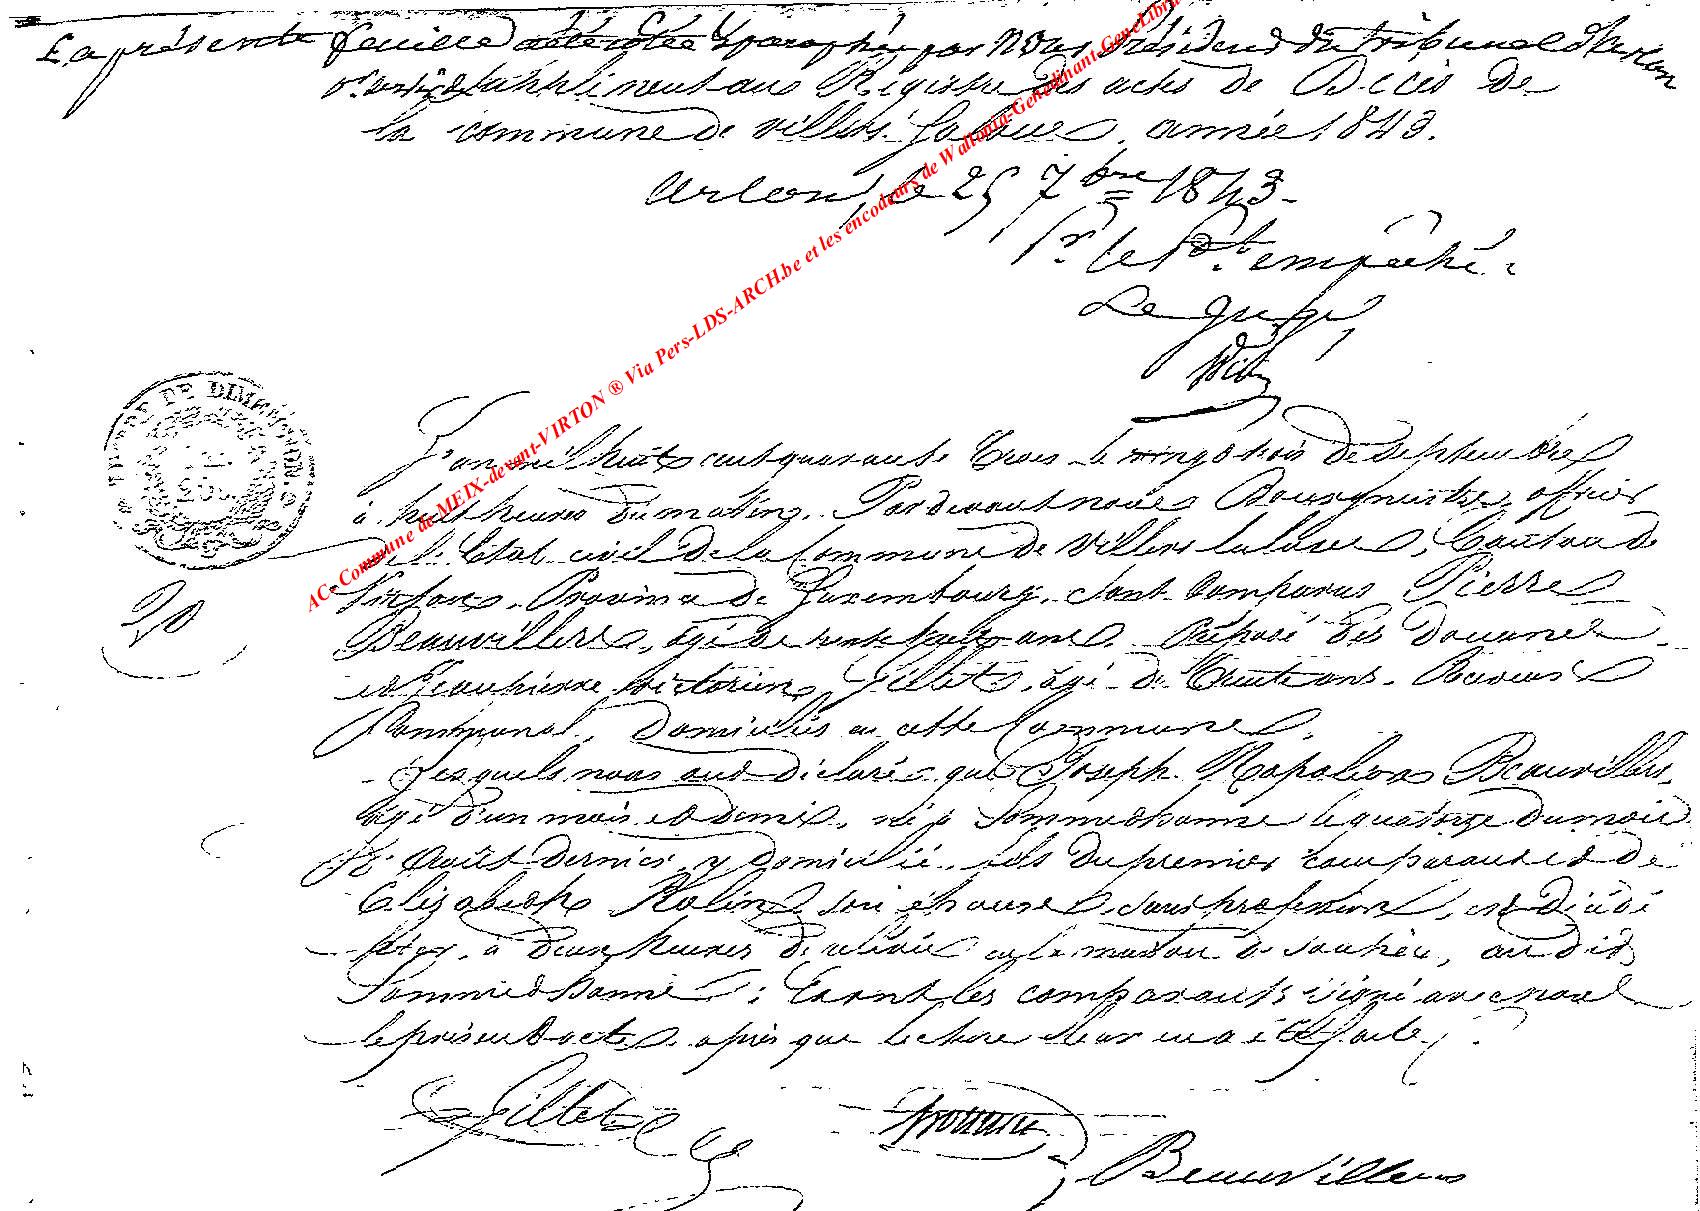 La présente feuille a été cotée & paraphée par Nous Président du Tribunal d'Arlon
supplément au Registre des actes de Décès de
la commune de villers la loue, année 1843.
Arlon, le 25 7bre 1843.
Pr. le Pdt. empêché.
Le Juge,
AC- Comune de MEIX-devant-VIRTON ® Via Pers-LDS-ARCH.be et les encodeurs de Wallonia-Genedinant-GeneLibr
TIMBRE DE DIMENSION
L'an mil huit cent quarante Trois le vingt trois de Septembre
à huit heures du matin, Pardevant nous Bourgmestre, officier
de l'Etat civil de la Commune de villers la loue, Canton de
Virton, Province de Luxembourg, Sont Comparus Pierre
Beauvillers, âgé de trente huit ans. Préposé des Douanes
et Jean pierre victorien Gillet, âgé de Trente ans. Receveur
Communal, Domiciliés en cette Commune.
Lesquels nous ont déclaré que Joseph Napoléon Beauvillers,
âgé d'un mois et demi, né à Sommethonne le quatorze du mois
d'Août dernier, y domicilié, fils du premier comparant et de
Elizabeth Rolin son épouse, sans profession, est décédé
hier, à deux heures de relevée en la maison de son père, au dit
Sommethonne; Et ont les comparants signé avec nous
le présent acte après que lecture leur en a été faite.
20
Gillet
Beauvillers